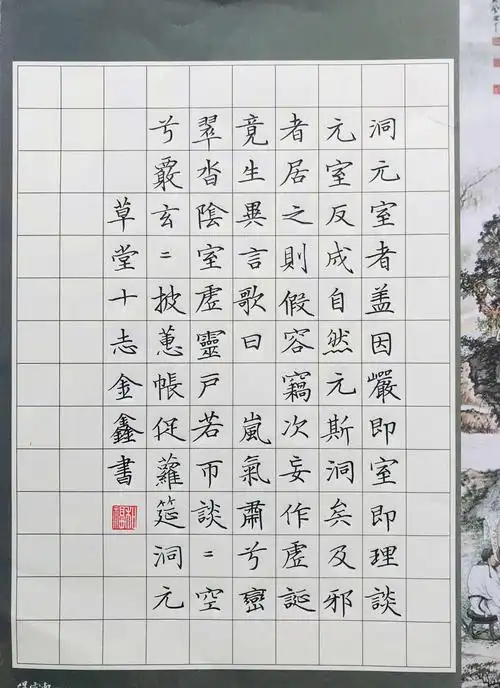 洞元室者盖因巖即室即理談
元室反成自然元斯洞矣及邪
者居之則假容竊次妄作虛誕
竟生異言歌曰 嵐氣肅兮巒
翠沓陰室虛靈戶若帀談〻空
兮覈玄〻披蕙帳促蘿筵洞元
草堂十志金鑫書